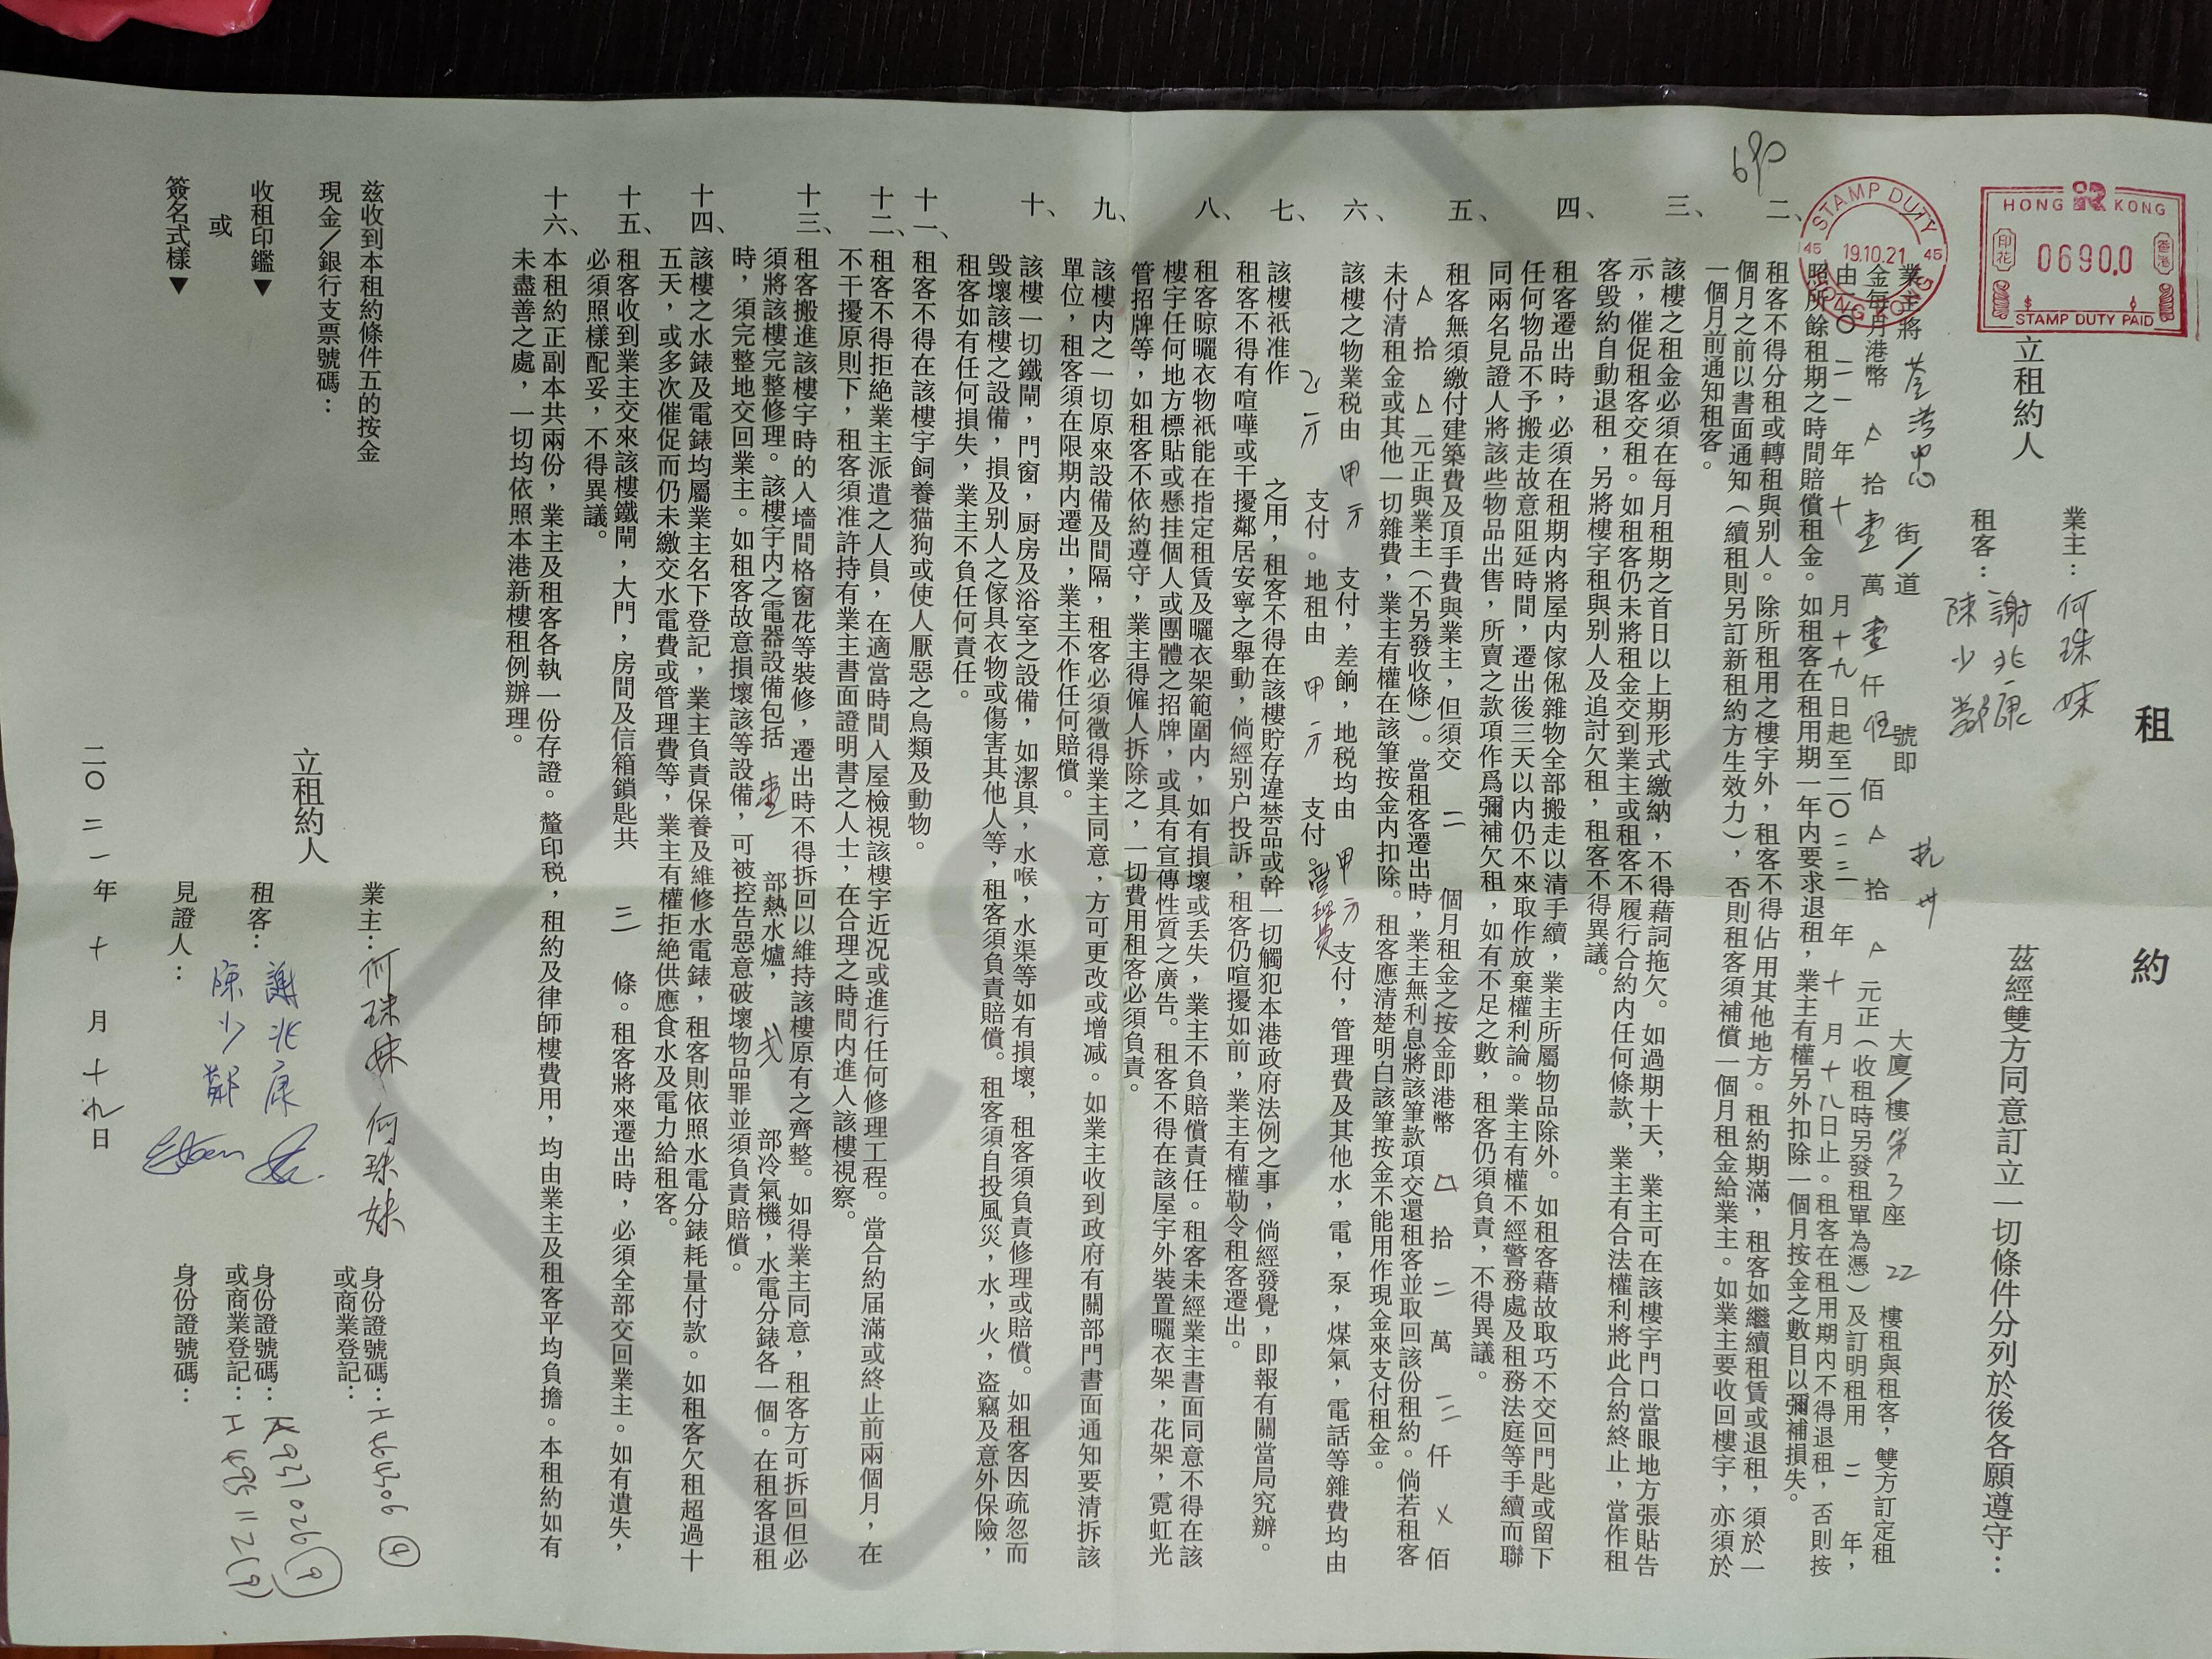 租約
HONG KONG
印花
06900
香港
STAMP DUTY PAID
STAMP DUTY
45 19.10.21 45
HONG KONG
690
立租約人
業主：何珠妹
租客：謝兆康
陳少鄰
茲經雙方同意訂立一切條件分列於後各願遵守：
業主將荃灣中心 街/道 號即 大廈/樓第3座 22 樓租與租客，雙方訂定租
金每月港幣 拾壹萬壹仟伍佰 拾 元正（收租時另發租單為憑）及訂明租用 二 年，
由二〇二一年十月十九日起至二〇二三年十月十八日止。租客在租用期內不得退租，否則按
照所餘租期之時間賠償租金。如租客在租用期一年內要求退租，業主有權另外扣除一個月按金之數目以彌補損失。
二、租客不得分租或轉租與別人。除所租用之樓宇外，租客不得佔用其他地方。租約期滿，租客如繼續租賃或退租，須於一
個月之前以書面通知（續租則另訂新租約方生效力），否則租客須補償一個月租金給業主。如業主要收回樓宇，亦須於
一個月前通知租客。
三、該樓之租金必須在每月租期之首日以上期形式繳納，不得藉詞拖欠。如過期十天，業主可在該樓宇門口當眼地方張貼告
示，催促租客交租。如租客仍未將租金交到業主或租客不履行合約內任何條款，業主有合法權利將此合約終止，當作租
客毀約自動退租，另將樓宇租與別人及追討欠租，租客不得異議。
四、租客遷出時，必須在租期內將屋內傢俬雜物全部搬走以清手續，業主所屬物品除外。如租客藉故取巧不交回門匙或留下
任何物品不予搬走故意阻延時間，遷出後三天以內仍不來取作放棄權利論。業主有權不經警務處及租務法庭等手續而聯
同兩名見證人將該些物品出售，所賣之款項作爲彌補欠租，如有不足之數，租客仍須負責，不得異議。
五、租客無須繳付建築費及頂手費與業主，但須交 二 個月租金之按金即港幣 拾二萬三仟 佰
拾 元正與業主（不另發收條）。當租客遷出時，業主無利息將該筆款項交還租客並取回該份租約。倘若租客
未付清租金或其他一切雜費，業主有權在該筆按金內扣除。租客應清楚明白該筆按金不能用作現金來支付租金。
六、該樓之物業税由 甲方 支付，差餉，地税均由 甲方 支付，管理費及其他水，電，泵，煤氣，電話等雜費均由
乙方 支付。地租由 甲方 支付。管理費
七、該樓祇准作 之用，租客不得在該樓貯存違禁品或幹一切觸犯本港政府法例之事，倘經發覺，即報有關當局究辦。
租客不得有喧嘩或干擾鄰居安寧之舉動，倘經別户投訴，租客仍喧擾如前，業主有權勒令租客遷出。
八、租客晾曬衣物祇能在指定租賃及曬衣架範圍內，如有損壞或丟失，業主不負賠償責任。租客未經業主書面同意不得在該
樓宇任何地方標貼或懸挂個人或團體之招牌，或具有宣傳性質之廣告。租客不得在該屋宇外裝置曬衣架，花架，霓虹光
管招牌等，如租客不依約遵守，業主得僱人拆除之，一切費用租客必須負責。
九、該樓內之一切原來設備及間隔，租客必須徵得業主同意，方可更改或增減。如業主收到政府有關部門書面通知要清拆該
單位，租客須在限期內遷出，業主不作任何賠償。
十、該樓一切鐵閘，門窗，厨房及浴室之設備，如潔具，水喉，水渠等如有損壞，租客須負責修理或賠償。如租客因疏忽而
毀壞該樓之設備，損及別人之傢具衣物或傷害其他人等，租客須負責賠償。租客須自投風災，水，火，盜竊及意外保險，
租客如有任何損失，業主不負任何責任。
十一、租客不得在該樓宇飼養猫狗或使人厭惡之鳥類及動物。
十二、租客不得拒絕業主派遣之人員，在適當時間入屋檢視該樓宇近況或進行任何修理工程。當合約届滿或終止前兩個月，在
不干擾原則下，租客須准許持有業主書面證明書之人士，在合理之時間內進入該樓視察。
十三、租客搬進該樓宇時的入墻間格窗花等裝修，遷出時不得拆回以維持該樓原有之齊整。如得業主同意，租客方可拆回但必
須將該樓完整修理。該樓宇內之電器設備包括 壹 部熱水爐，弍 部冷氣機，水電分錶各一個。在租客退租
時，須完整地交回業主。如租客故意損壞該等設備，可被控告惡意破壞物品罪並須負責賠償。
十四、該樓之水錶及電錶均屬業主名下登記，業主負責保養及維修水電錶，租客則依照水電分錶耗量付款。如租客欠租超過十
五天，或多次催促而仍未繳交水電費或管理費等，業主有權拒絕供應食水及電力給租客。
十五、租客收到業主交來該樓鐵閘，大門，房間及信箱鎖匙共 三 條。租客將來遷出時，必須全部交回業主。如有遺失，
必須照樣配妥，不得異議。
十六、本租約正副本共兩份，業主及租客各執一份存證。釐印税，租約及律師樓費用，均由業主及租客平均負擔。本租約如有
未盡善之處，一切均依照本港新樓租例辦理。
茲收到本租約條件五的按金
現金/銀行支票號碼：
收租印鑑▼
或
簽名式樣▼
立租約人
業主：何珠妹 何珠妹
身份證號碼：H464306(4)
或商業登記：
租客：謝兆康
陳少鄰
身份證號碼：K937026(9)
或商業登記：H495112(9)
見證人：
身份證號碼：
二〇二一年十月十九日
COPY